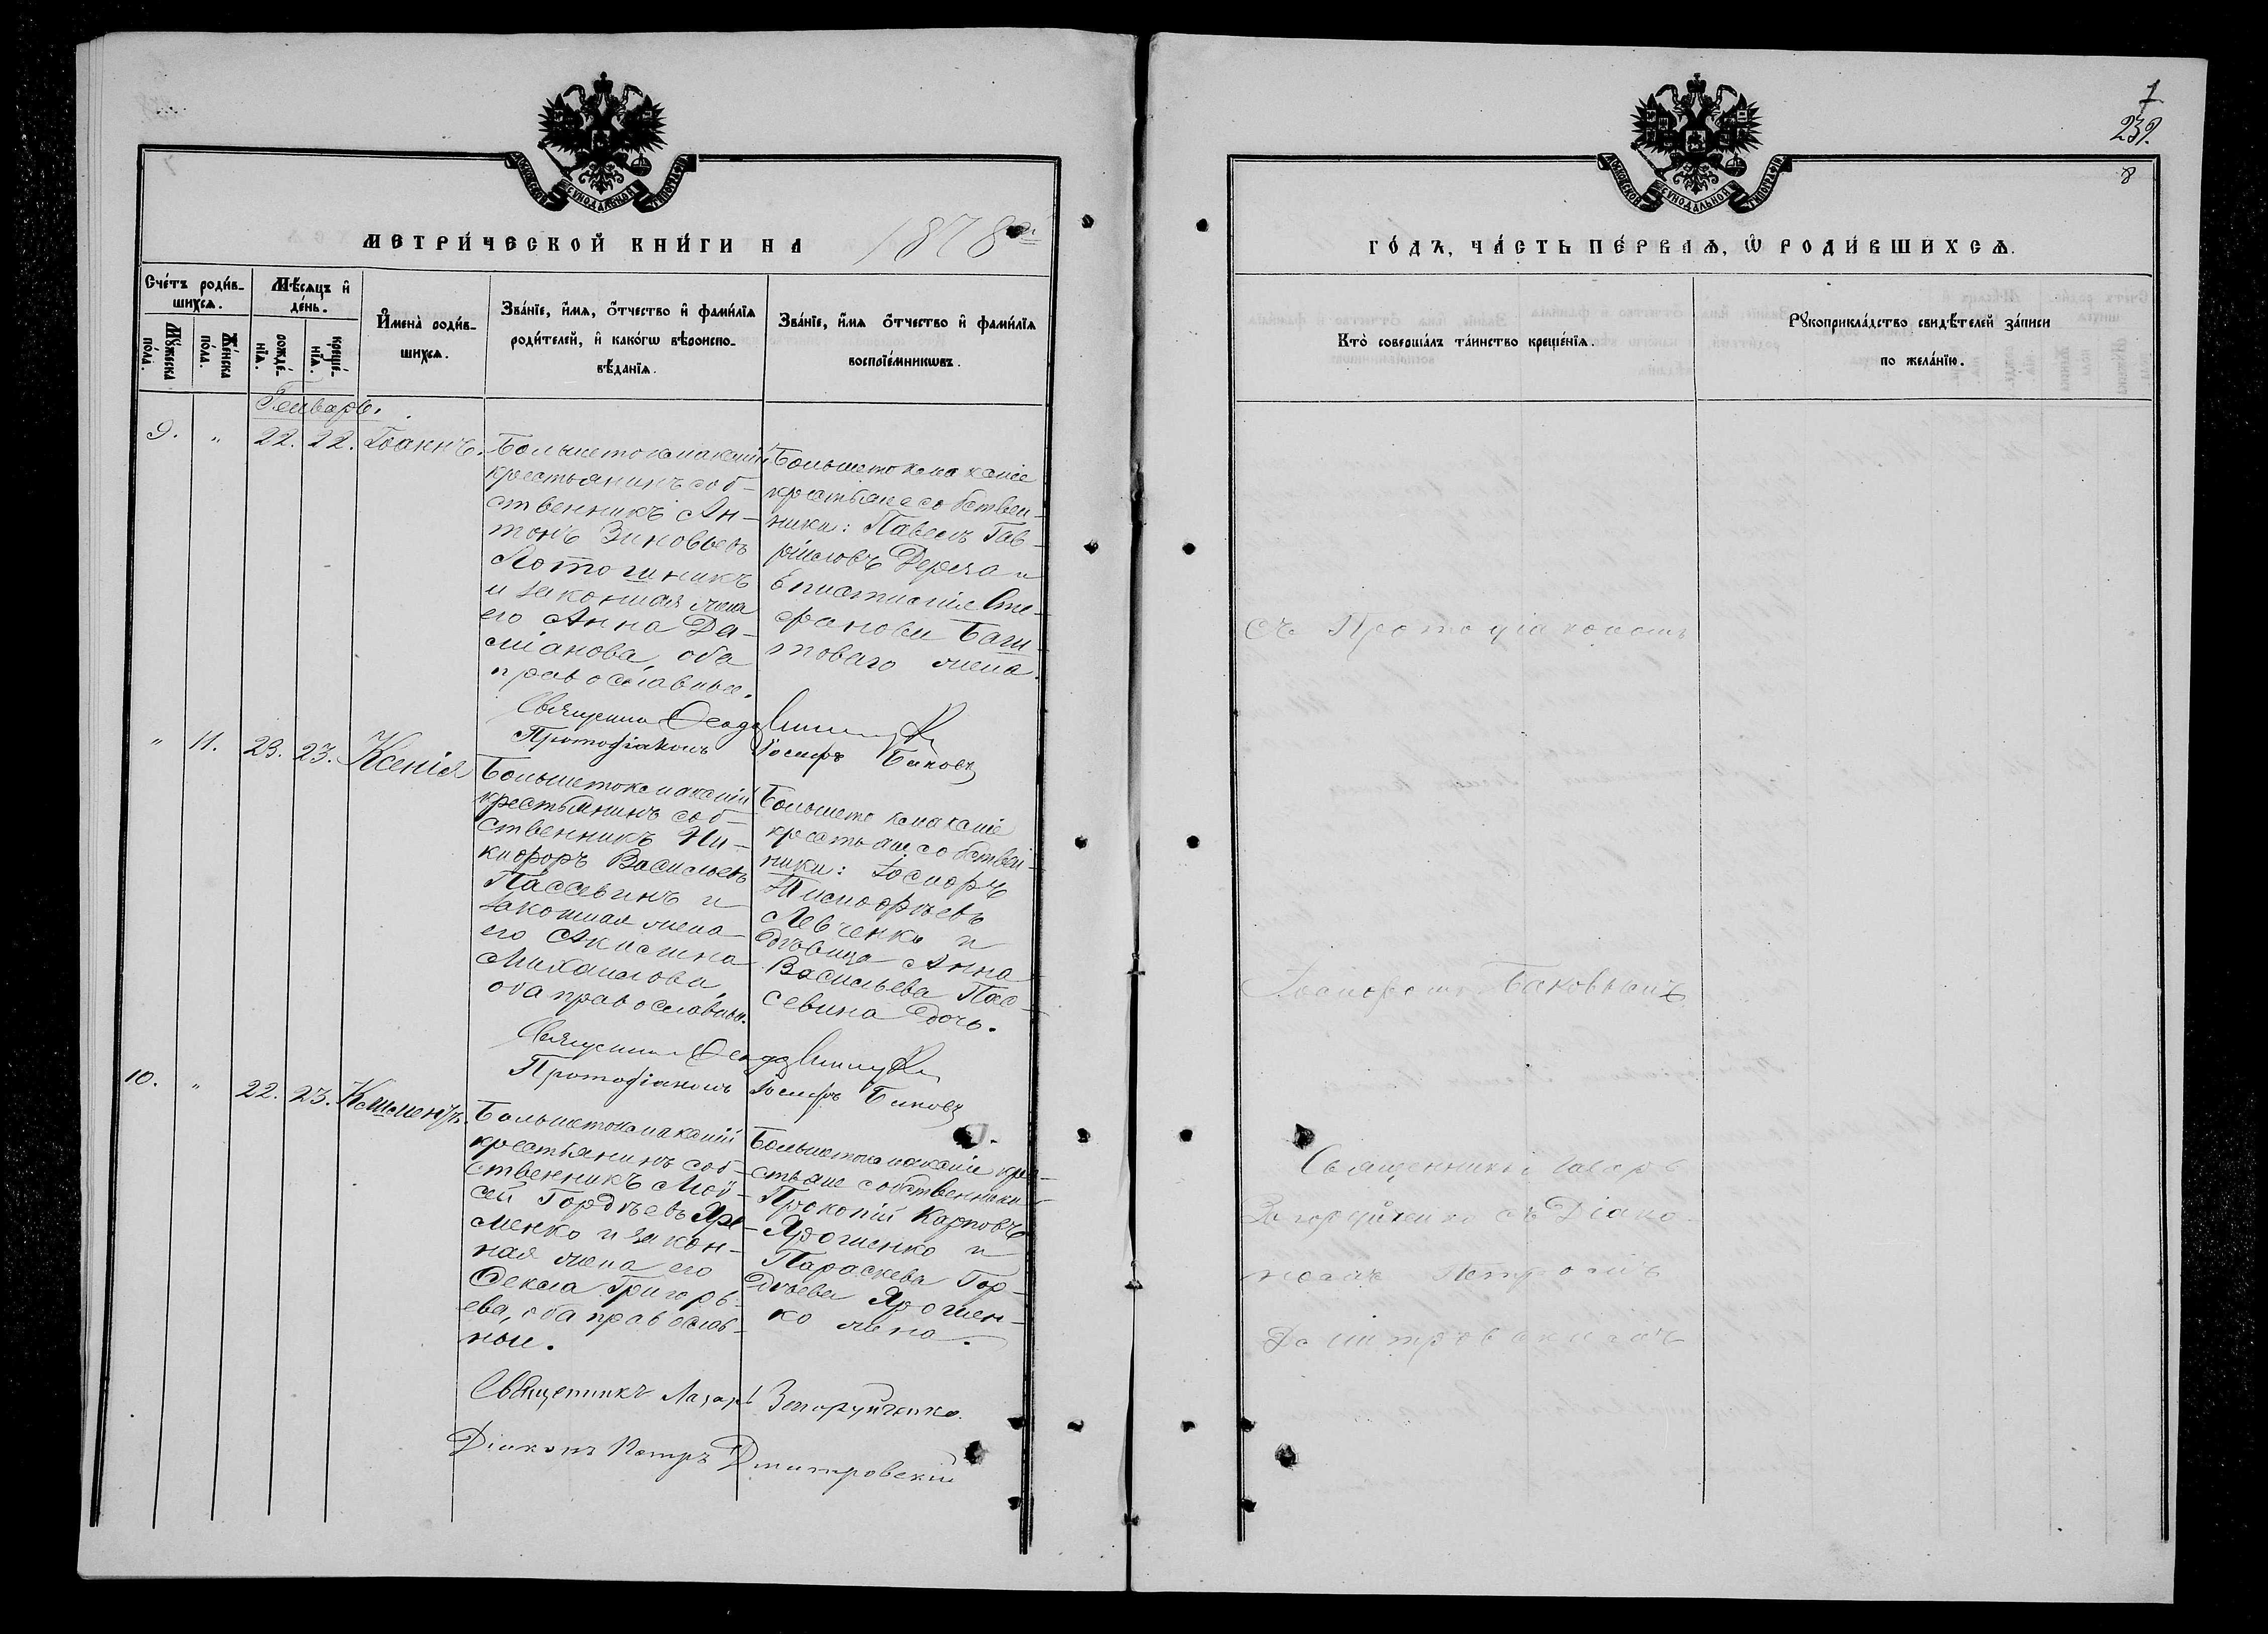 МОСКОВСКОЙ СУНОДАЛЬНОЙ ТИПОГРАФІИ
МЕТРИ́ЧЕСКОЙ КНИ́ГИ НА 1878ой
Сче́тъ роди́в-
шихсѧ.
Мѣ́сѧцъ и҆
де́нь.
Мꙋ́жеска
по́ла.
Же́нска
по́ла.
рожде́-
нїѧ.
креще́-
нїѧ.
И҆мена̀ роди́в-
шихсѧ.
Зва́нїе, и҆́мѧ, ѻ҆́тчество и҆ фами́лїѧ
роди́телей, и҆ како́гѡ вѣроиспо-
вѣ́данїѧ.
Зва́нїе, и҆́мѧ ѻ҆́тчество и҆ фами́лїѧ
воспрїе́мникѡвъ.
Генварь.
9. " 22. 22. Іоаннъ.
Большетокмакскій
крестьянинъ соб-
ственникъ Ан-
тонъ Зиновьевъ
Лотошникъ
и законная жена
его Анна Да-
міанова, оба
православные.
Большетокмакскіе
крестьяне собствен-
ники: Павелъ Гав-
ріиловъ Дереза и
Епистимія Сте-
фанова Баш-
товаго жена.
Священник Ѳеодо
Протодіаконъ Іосифъ Баковъ
" 11. 23. 23. Ксенія
Большетокмакскій
крестьянинъ соб-
ственникъ Ни-
кифоръ Васильевъ
Пассевинъ и
законная жена
его Акилина
Михаилова,
оба православны.
Большетокмакскіе
крестьяне собствен-
ники: Іосифъ
Тимофѣевъ
Левченко и
дѣвица Анна
Васильева Пас-
севина дочь.
Священник Ѳеодо
Протодіаконъ Іосифъ Баковъ
10. " 22. 23. Климентъ.
Большетокмакскій
крестьянинъ соб-
ственникъ Мои-
сей Гордѣевъ Яре-
менко и закон-
ная жена его
Ѳекла Григорь-
ева, оба православ-
ные.
Большетокмакскіе кре-
стьяне собственники
Прокопій Карповъ
Ярошенко и
Параскева Гор-
дѣева Ярошен-
ко жена.
Священникъ Лазарь Запоруйченко.
Діаконъ Петръ Дмитровскій
7
239.
8
МОСКОВСКОЙ СУНОДАЛЬНОЙ ТИПОГРАФІИ
ГО́ДЪ, ЧА́СТЬ ПЕ́РВАѦ, Ѽ РОДИ́ВШИХСѦ.
Кто̀ соверша́лъ та́инство креще́нїѧ.
Рꙋкоприкла́дство свидѣ́телей за́писи
по жела́нїю.
съ Протодіакономъ
Іосифомъ Баковымъ
Священникъ Лазарь
Запоруйченко съ Діако-
номъ Петромъ
Дмитровскимъ